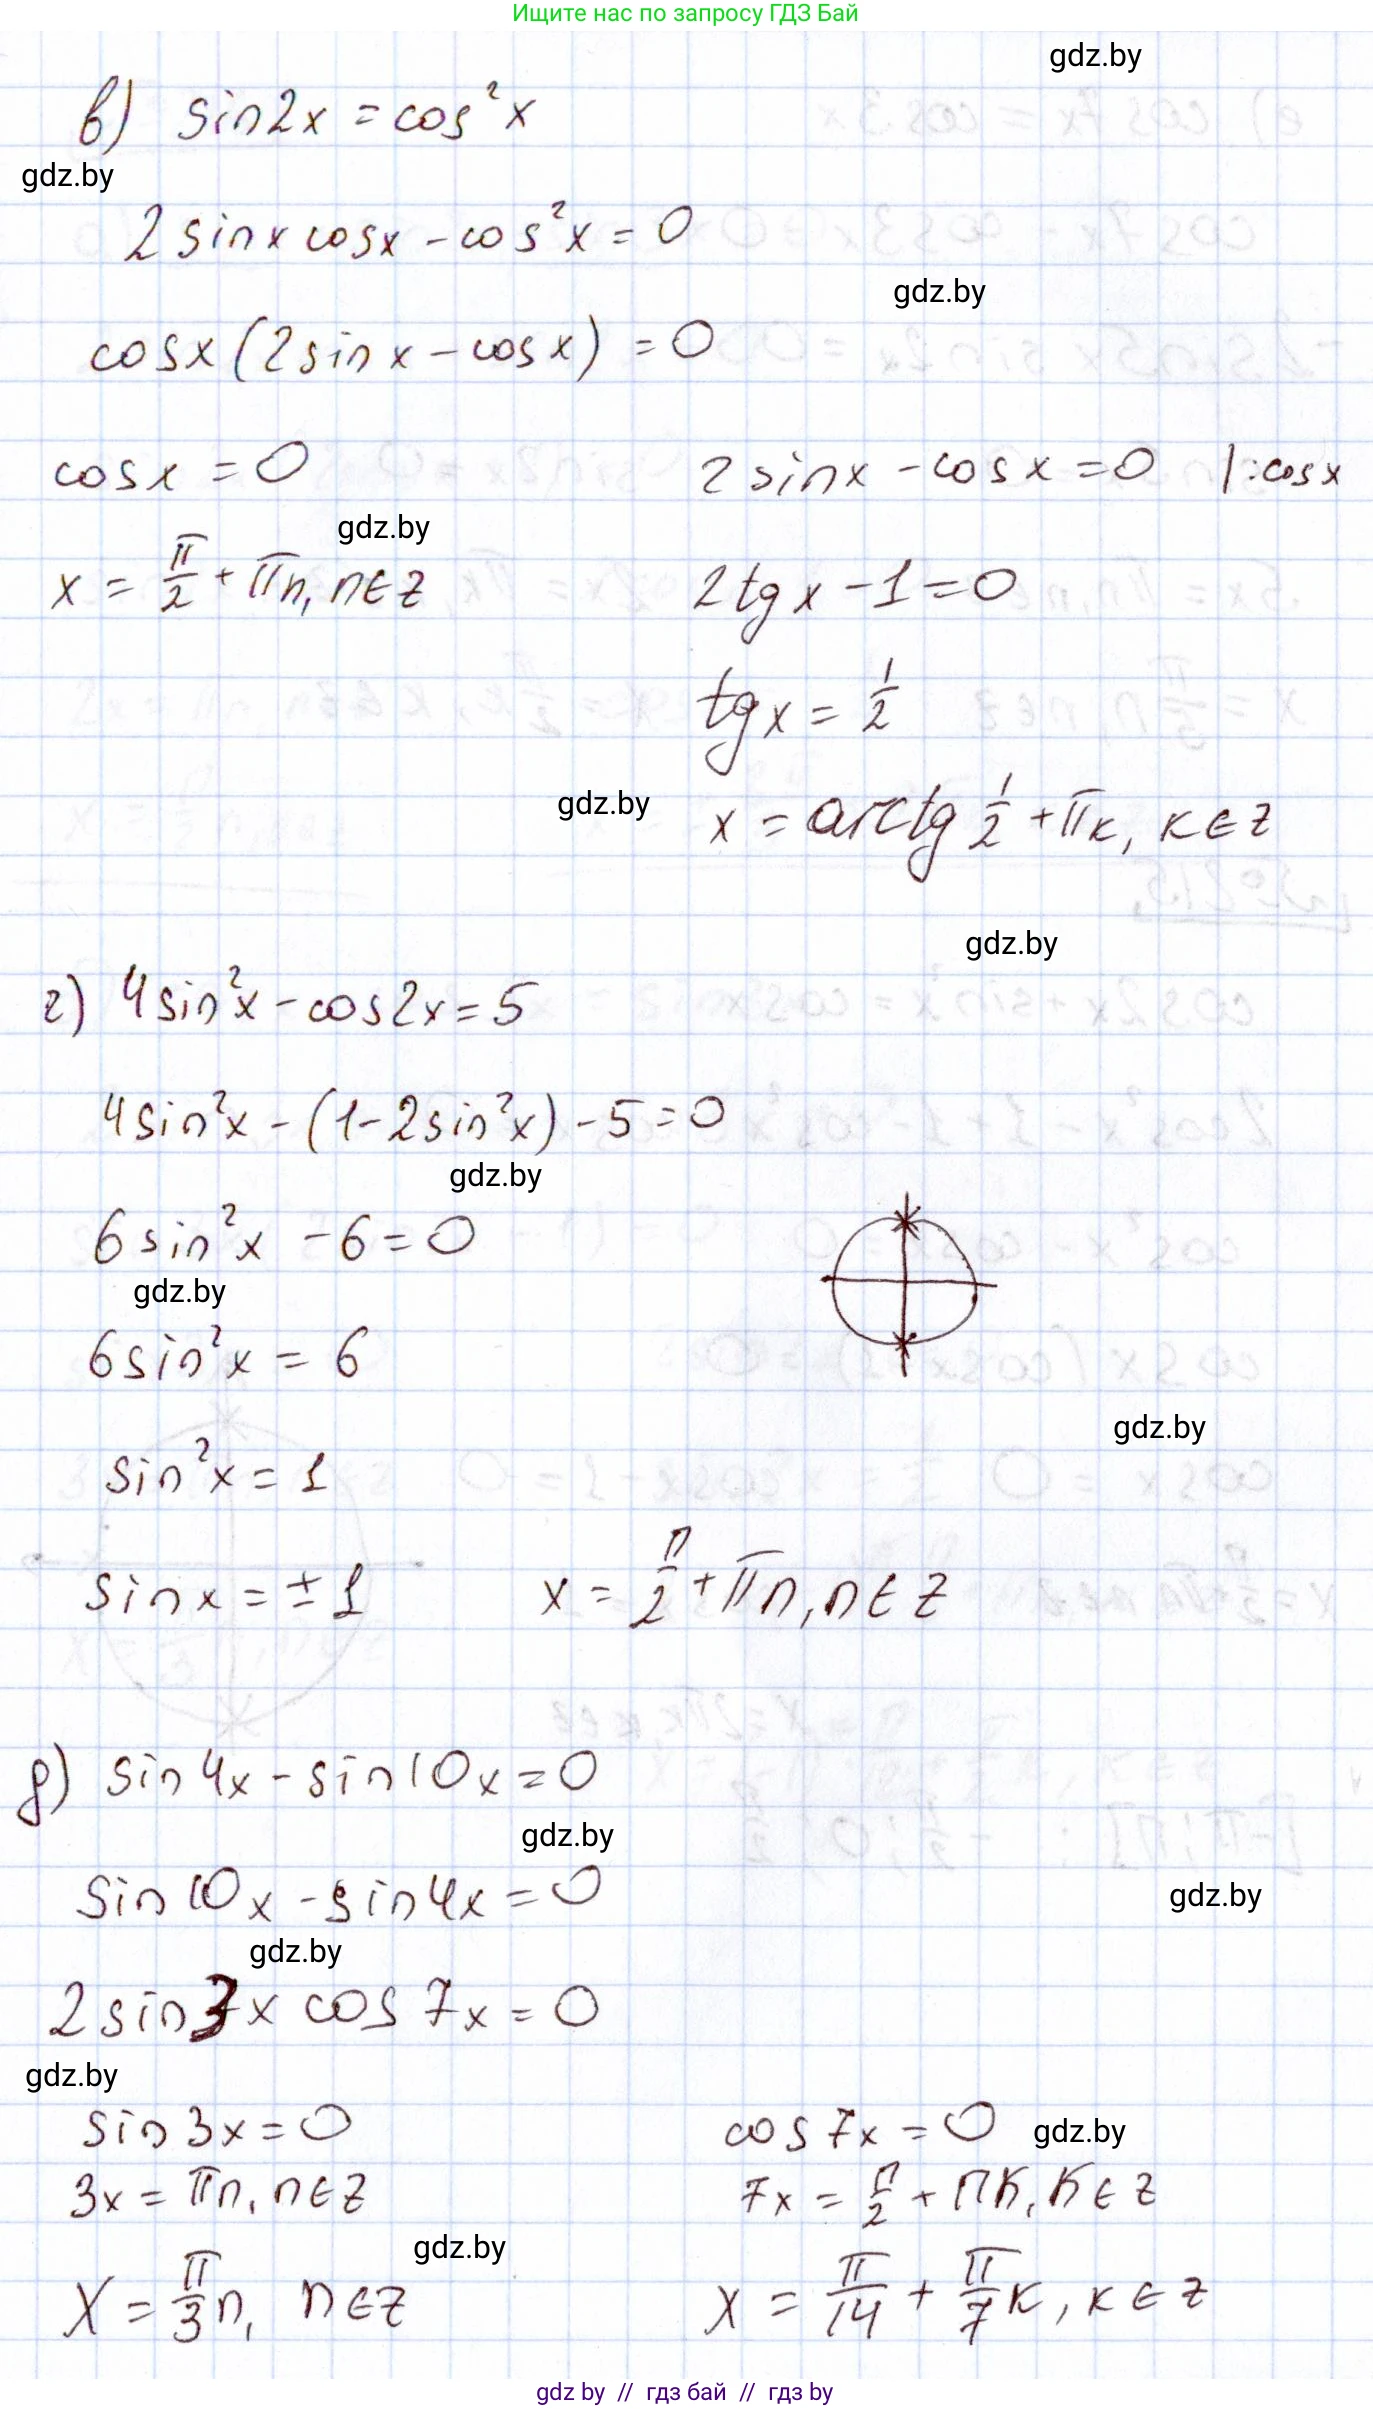 Ищите нас по запросу ГДЗ Бай
gdz.by
в) sin2x = cos²x
gdz.by
2 sinx cosx - cos²x = 0
gdz.by
cosx (2sinx - cosx) = 0
cosx = 0
2 sinx - cosx = 0 |:cosx
gdz.by
x = π/2 + πn, n∈Z
2tgx - 1 = 0
tgx = 1/2
gdz.by
x = arctg 1/2 + πk, k∈Z
gdz.by
г) 4sin²x - cos2x = 5
4sin²x - (1-2sin²x) - 5 = 0
gdz.by
6sin²x - 6 = 0
gdz.by
6sin²x = 6
gdz.by
sin²x = 1
sinx = ±1
x = π/2 + πn, n∈Z
д) sin4x - sin10x = 0
gdz.by
sin10x - sin4x = 0
gdz.by
gdz.by
2sin3x cos7x = 0
gdz.by
sin3x = 0
cos7x = 0
gdz.by
3x = πn, n∈Z
7x = π/2 + πk, k∈Z
gdz.by
x = π/3 n, n∈Z
x = π/14 + π/7 k, k∈Z
gdz by // гдз бай // гдз by